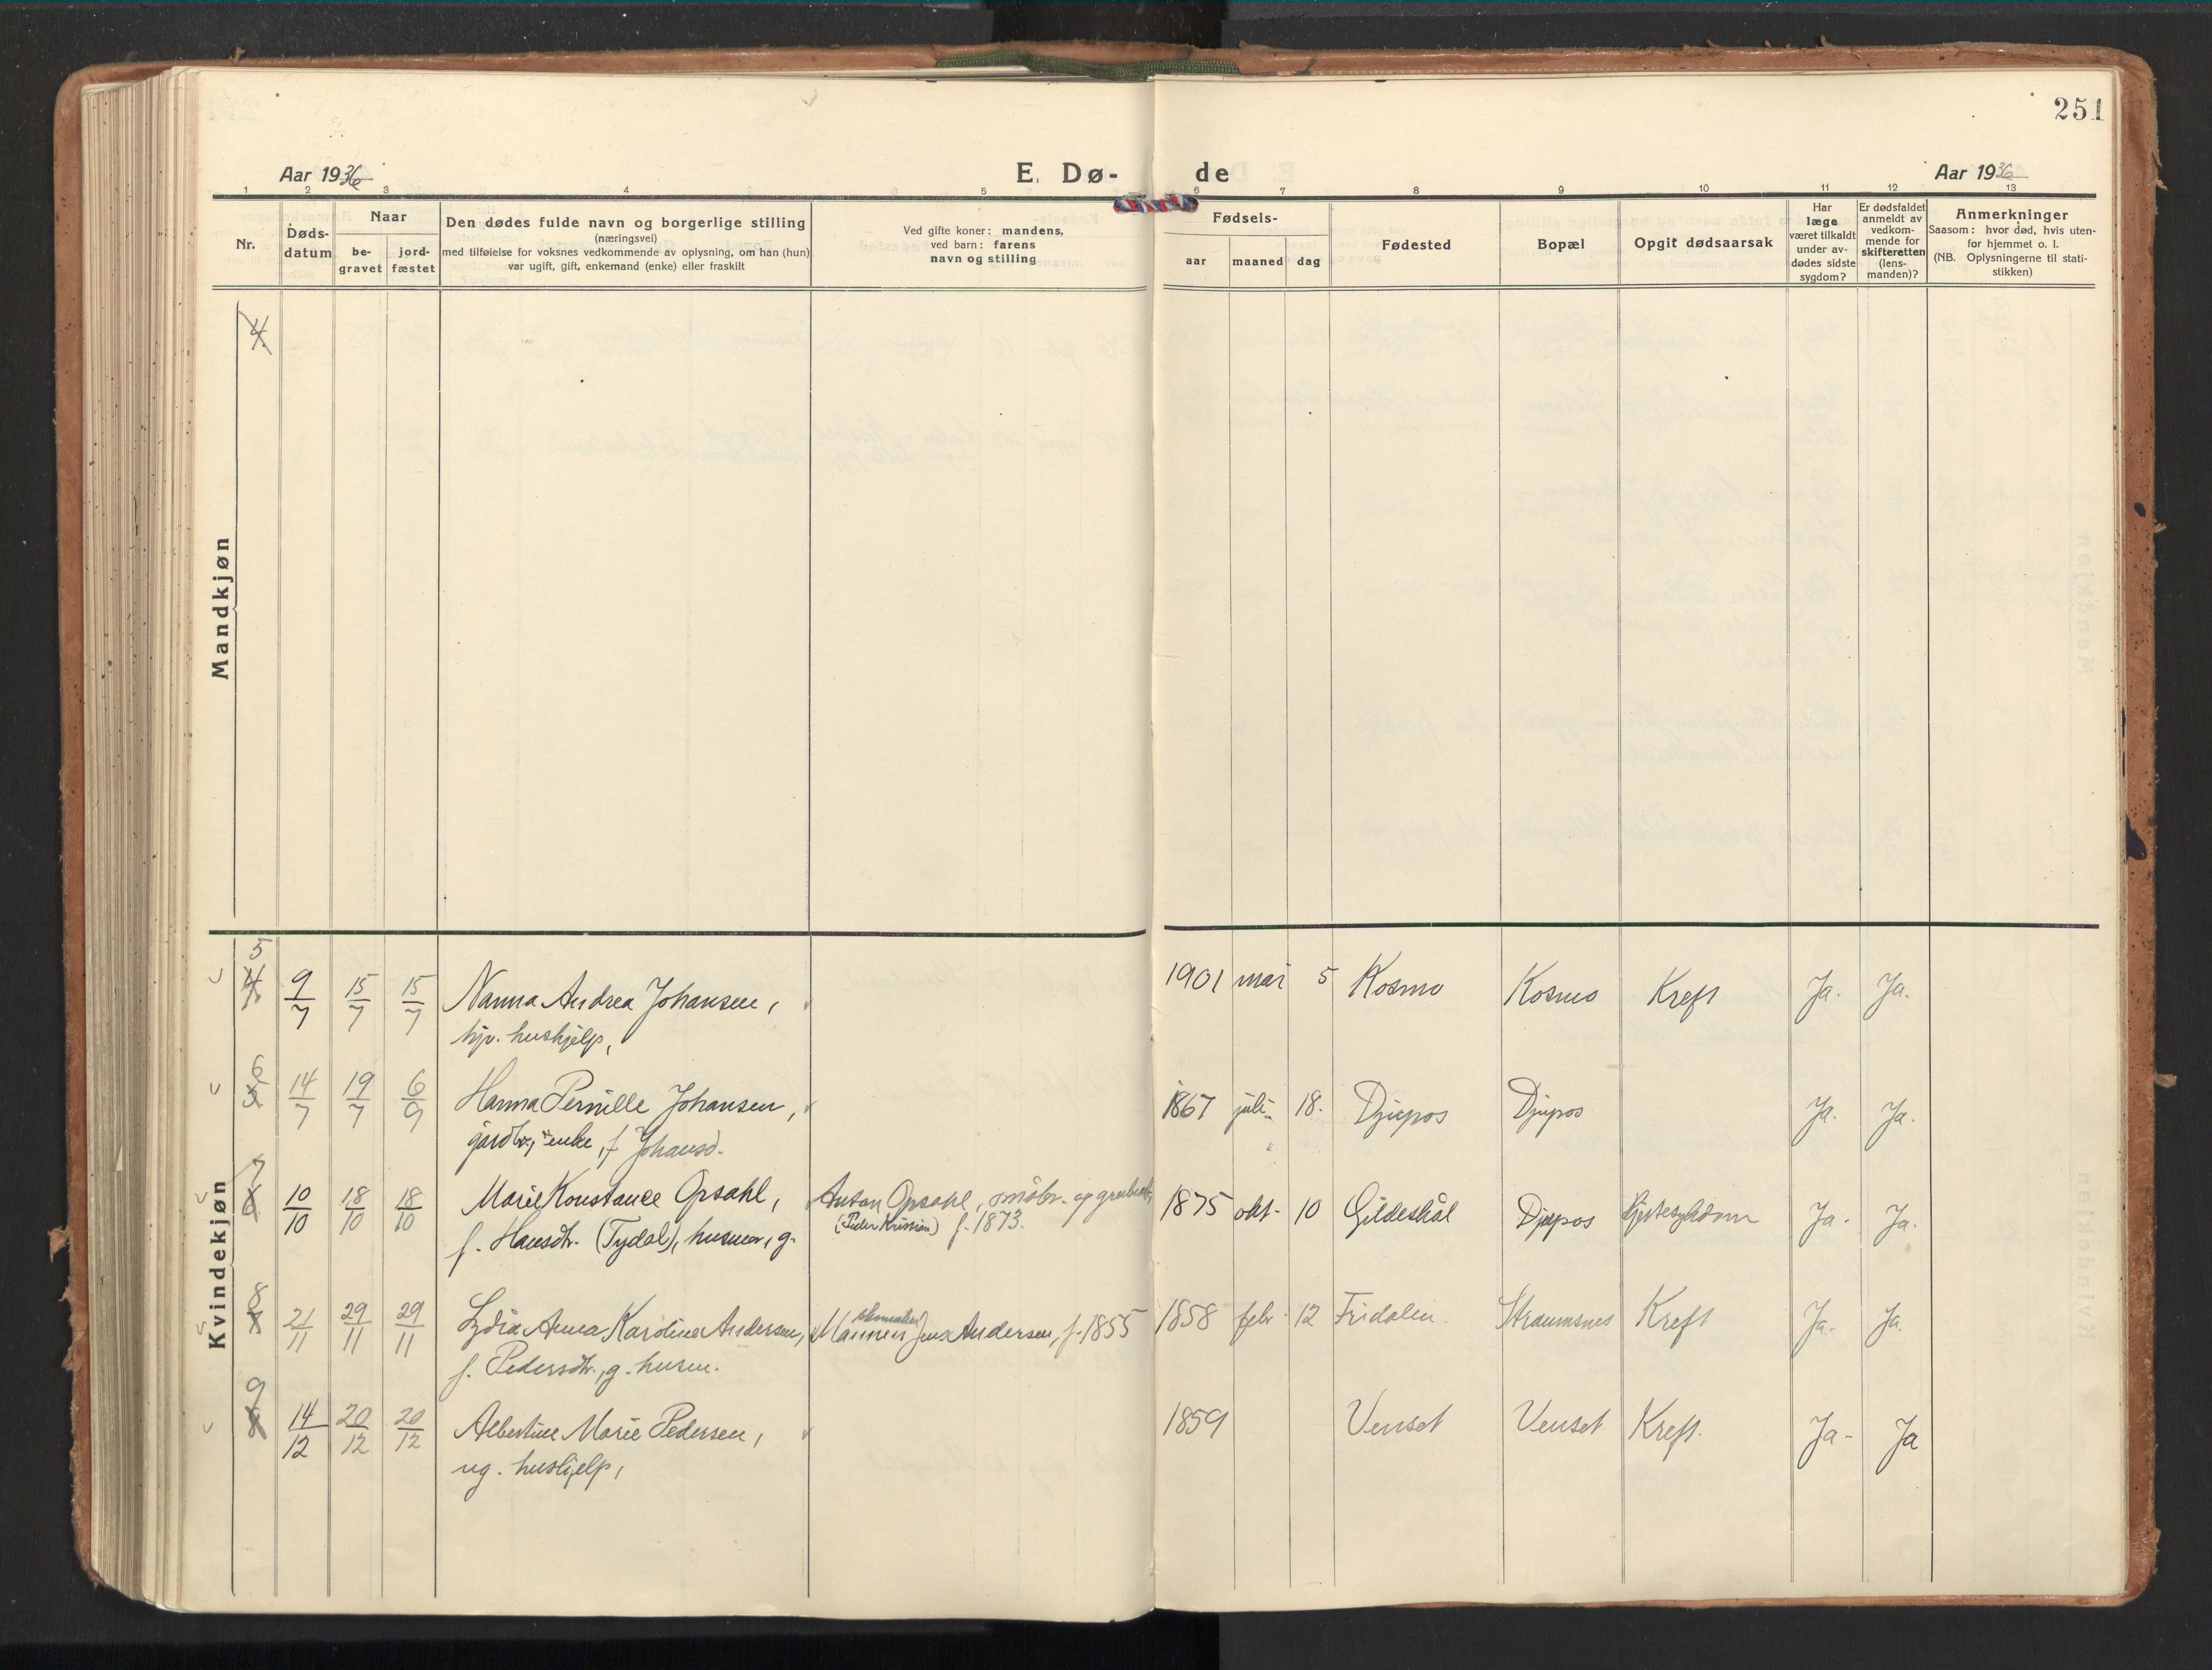 251
Aar 1936 E. Dø- de Aar 1936
1 2 3 4 5 6 7 8 9 10 11 12 13
Nr.
Døds-
datum
Naar
be-
gravet
jord-
fæstet
Den dødes fulde navn og borgerlige stilling
(næringsvei)
med tilføielse for voksnes vedkommende av oplysning, om han (hun)
var ugift, gift, enkemand (enke) eller fraskilt
Ved gifte koner: mandens,
ved barn: farens
navn og stilling
Fødsels-
aar maaned dag
Fødested
Bopæl
Opgit dødsaarsak
Har
læge
været tilkaldt
under av-
dødes sidste
sygdom?
Er dødsfaldet
anmeldt av
vedkom-
mende for
skifteretten
(lens-
manden)?
Anmerkninger
Saasom: hvor død, hvis uten-
for hjemmet o. l.
(NB. Oplysningerne til stati-
stikken)
Mandkjøn
4
Kvindekjøn
5
4 9/7 15/7 15/7 Nanna Andrea Johansen, 1901 mai 5 Kosmo Kosmo Kreft Ja. Ja.
hjv. hushjelp,
6
5 14/7 19/7 6/9 Hanna Pernille Johansen, 1867 juli 18. Djupos Djupos Ja. Ja.
gårdbr., enke, f. Johansd.
7
6 10/10 18/10 18/10 Marie Konstance Opsahl, Anton Opsahl, småbr. og 1875 okt. 10 Gildeskål Djupos Hjertesykdom Ja. Ja.
f. Hansdtr. (Tydal), husmor, g. (Peder Kristian) f. 1873.
8
7 21/11 29/11 29/11 Lydia Anna Karoline Andersen, Jens Andersen, f. 1855 1858 febr. 12 Fridalen Straumsnes Kreft Ja. Ja.
f. Pedersdtr., g. husm.
9
8 14/12 20/12 20/12 Albertine Marie Pedersen, 1859 Venset Venset Kreft. Ja. Ja
ug. hushjelp,